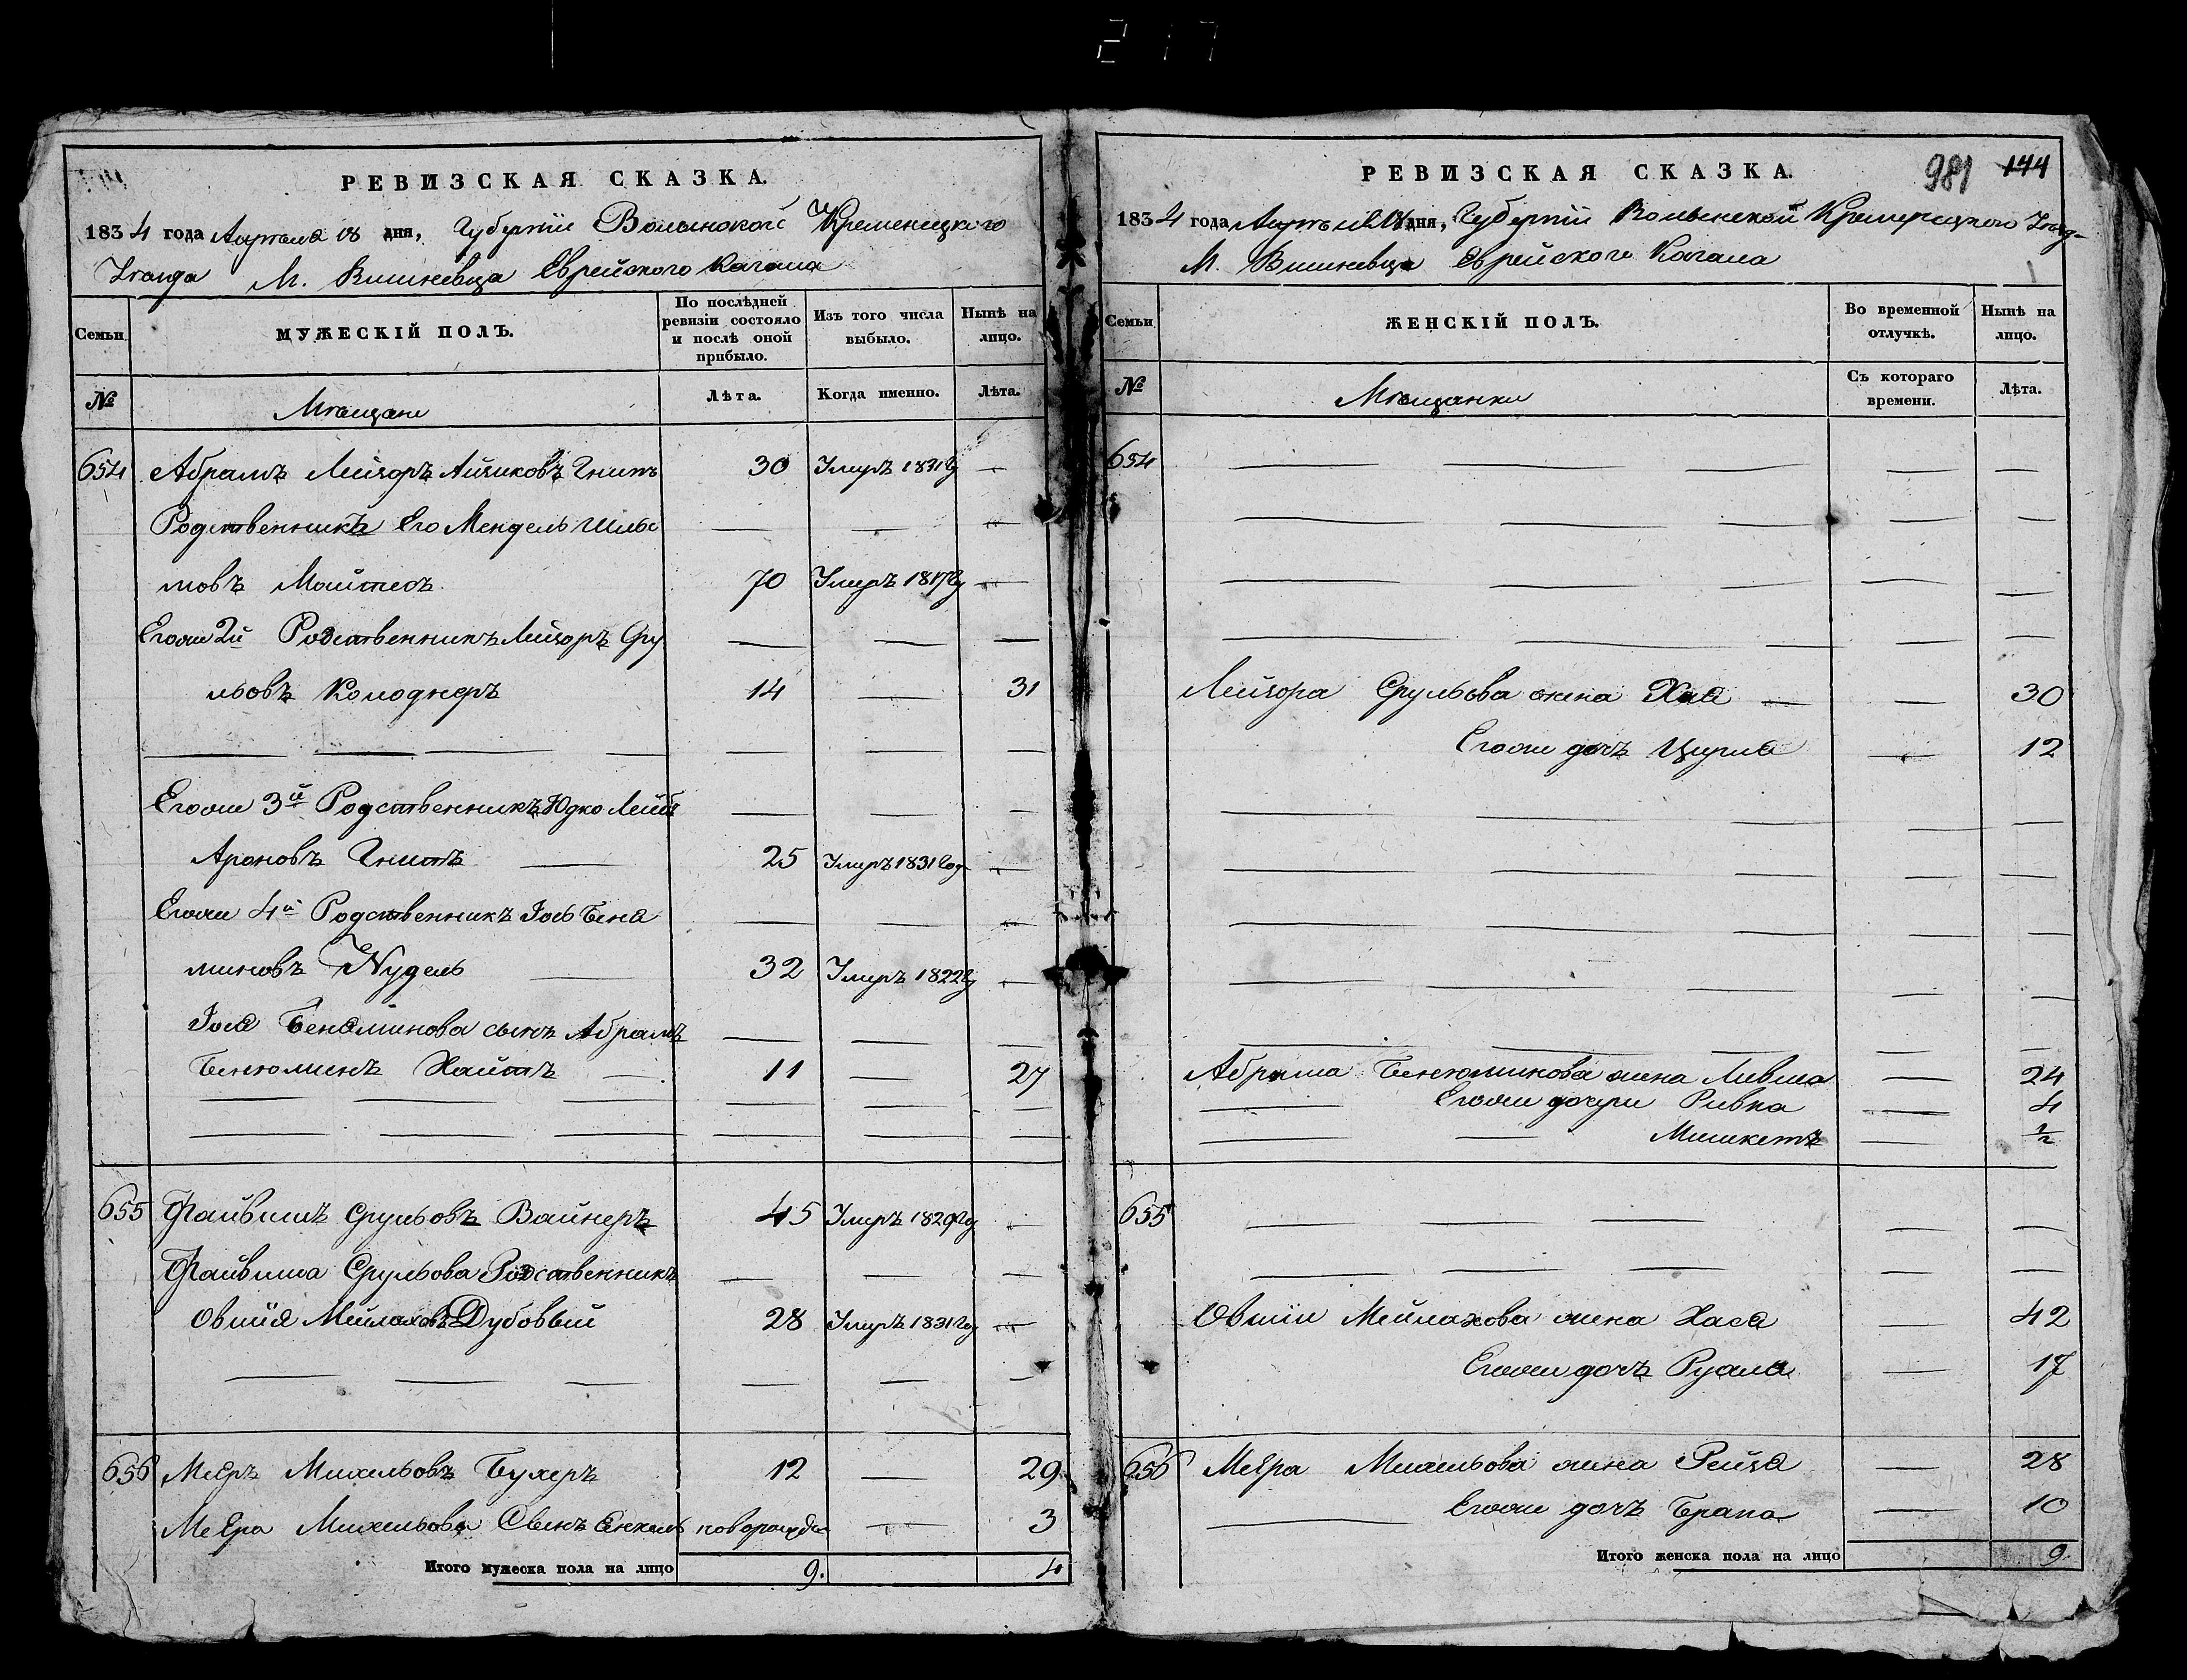 217
РЕВИЗСКАЯ СКАЗКА.
1834 года Апреля 18 дня, Губернiи Волынской Кременецкого
Уезда М. Вишневца Еврейского Кагала
Семьи
МУЖЕСКIЙ ПОЛЪ.
По послѣдней ревизiи состояло и послѣ оной прибыло.
Изъ того числа выбыло.
Нынѣ на лицо.
№
Мещане
Лѣта.
Когда именно.
Лѣта.
654 Абрамъ Лейзоръ Айзиковъ Гнитъ 30 Умеръ 1831 —
Родственникъ Его Мендель Шльо — — —
мовъ 70 Умеръ 1817 —
Егоже 2й Родственникъ Лейзоръ Сру — — —
льовъ Колоднеръ 14 — 31
— — — — — — —
Егоже 3й Родственникъ Юдко Лейбъ — — —
Ароновъ Гнитъ — 25 Умеръ 1831 год —
Егоже 4й Родственникъ Iось Беня — — —
миновъ Нудель — 32 Умеръ 1822 —
Iося Беняминова сынъ Абрамъ — — —
Бенюминъ — 11 — 27
— — — — — —
— — — — — —
655 Файвишъ Срульовъ Вайнеръ 45 Умеръ 1829 —
Файвиша Срульова Родственникъ — — —
Овшiя Мейлаховъ Дубовый 28 Умеръ 1831 —
— — — — — —
656 Мееръ Михельовъ Бухеръ 12 — 29
Меера Михельова Сынъ новорожде — 3
Итого мужеска пола на лицо 9. 4
РЕВИЗСКАЯ СКАЗКА.
981 144
1834 года Апреля 18 дня, Губернiи Волынской Кременецкого Уезд-
М. Вишневца Еврейского Кагала
Семьи
ЖЕНСКIЙ ПОЛЪ.
Во временной отлучкѣ.
Нынѣ на лицо.
№
Мещанки
Съ котораго времени.
Лѣта.
654 — — — — —
— — — — —
— — — — —
— — — —
Лейзора Срульова жена Хая — — 30
Егоже дочъ — 12
— — — — —
— — — — —
— — — — —
— — — — —
— — — — —
Абрама Бенюминова жена Ливша — 24
— Егоже дочери Ривка — 4
— — — 1/2
655 — — — — —
— — — — —
Овшiи Мейлахова жена Хася — 42
Егоже дочъ — 17
656 Меера Михельова жена Рейзя — 28
— Егоже дочъ — 10
Итого женска пола на лицо 9.